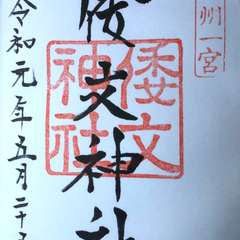 州一宮
倭文神社
倭文
神社
令和元年五月二十